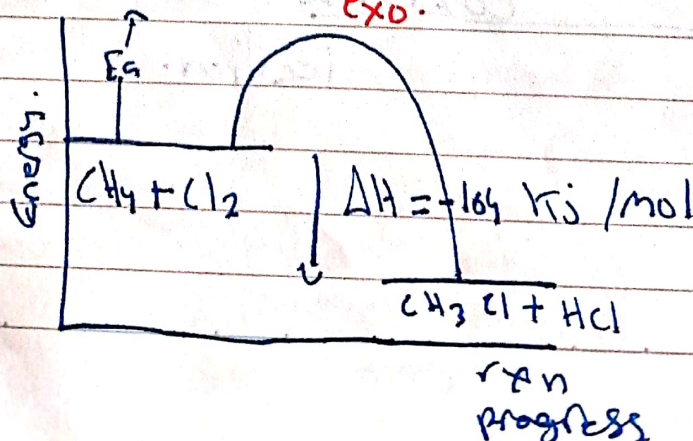 exo.
Ea
Energy.
CH4 + Cl2
ΔH = -104 Kj /mol
CH3 Cl + HCl
rxn
progress